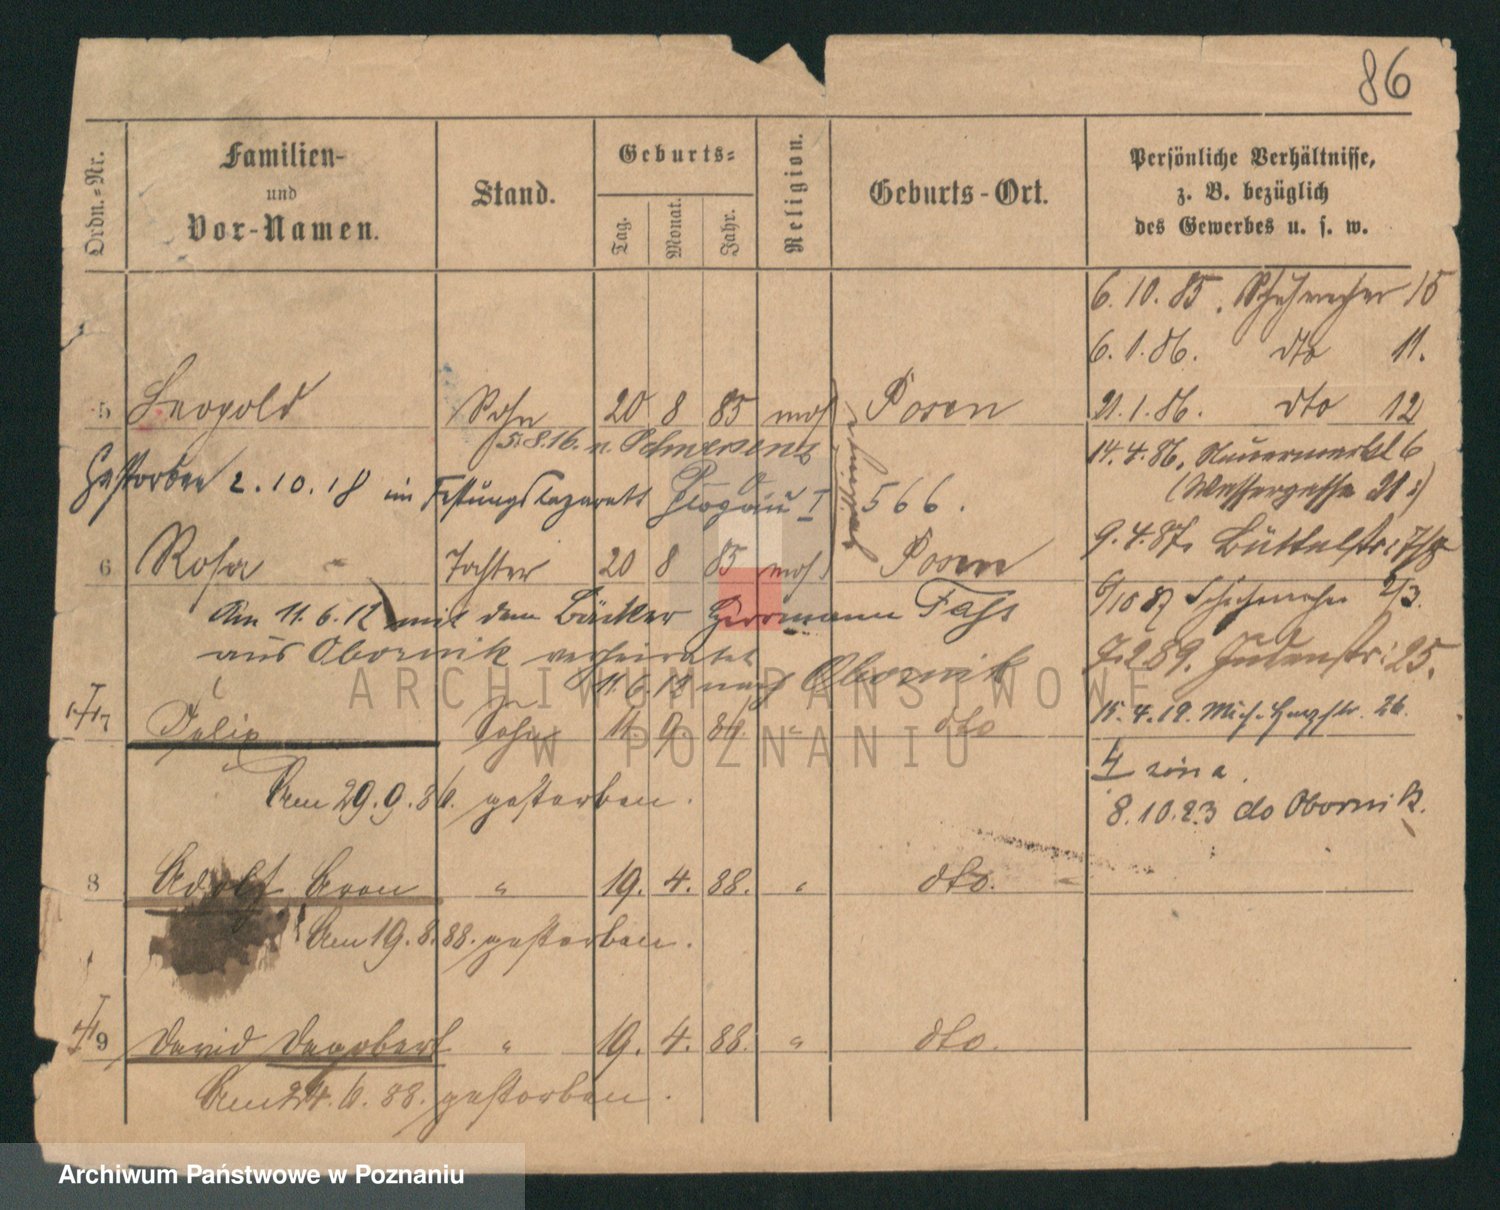 86
Ordn.-Nr.
Familien-
und
Vor-Namen.
Stand.
Geburts-
Tag.
Monat.
Jahr.
Religion.
Geburts-Ort.
Persönliche Verhältnisse,
z. B. bezüglich
des Gewerbes u. s. w.
6.10.85. Schuhmacher 15
6.1.86. dto 11.
5 Leopold Sohn 20 8 85 mos Posen
21.1.86. dto 12
5.8.16. n. Schwersenz
14.4.86. 6
(Wassergasse 21
Gestorben 2.10.18 im Festungslazarett Glogau I 566.
9.4.87. Büttelstr:
6 Rosa Tochter 20 8 85 mos Posen
6/10 87 Schuhmacher 2/3.
Am 11.6.12 mit dem Bäcker Herrmann Fass
aus Obornik verheiratet
11.6.12 nach Obornik
Judenstr: 25.
7 Felix Sohn 11. 9. 86. " dto
15.4.19. 26.
Am 29.9.86. gestorben.
4 żona.
8.10.23 do Obornik.
8 Adolf Aron " 19. 4. 88. " dto.
Am 19.8.88. gestorben.
9 David Dagobert " 19. 4. 88. " dto.
Am 24.6.88. gestorben.
ARCHIWUM PAŃSTWOWE
W POZNANIU
Archiwum Państwowe w Poznaniu